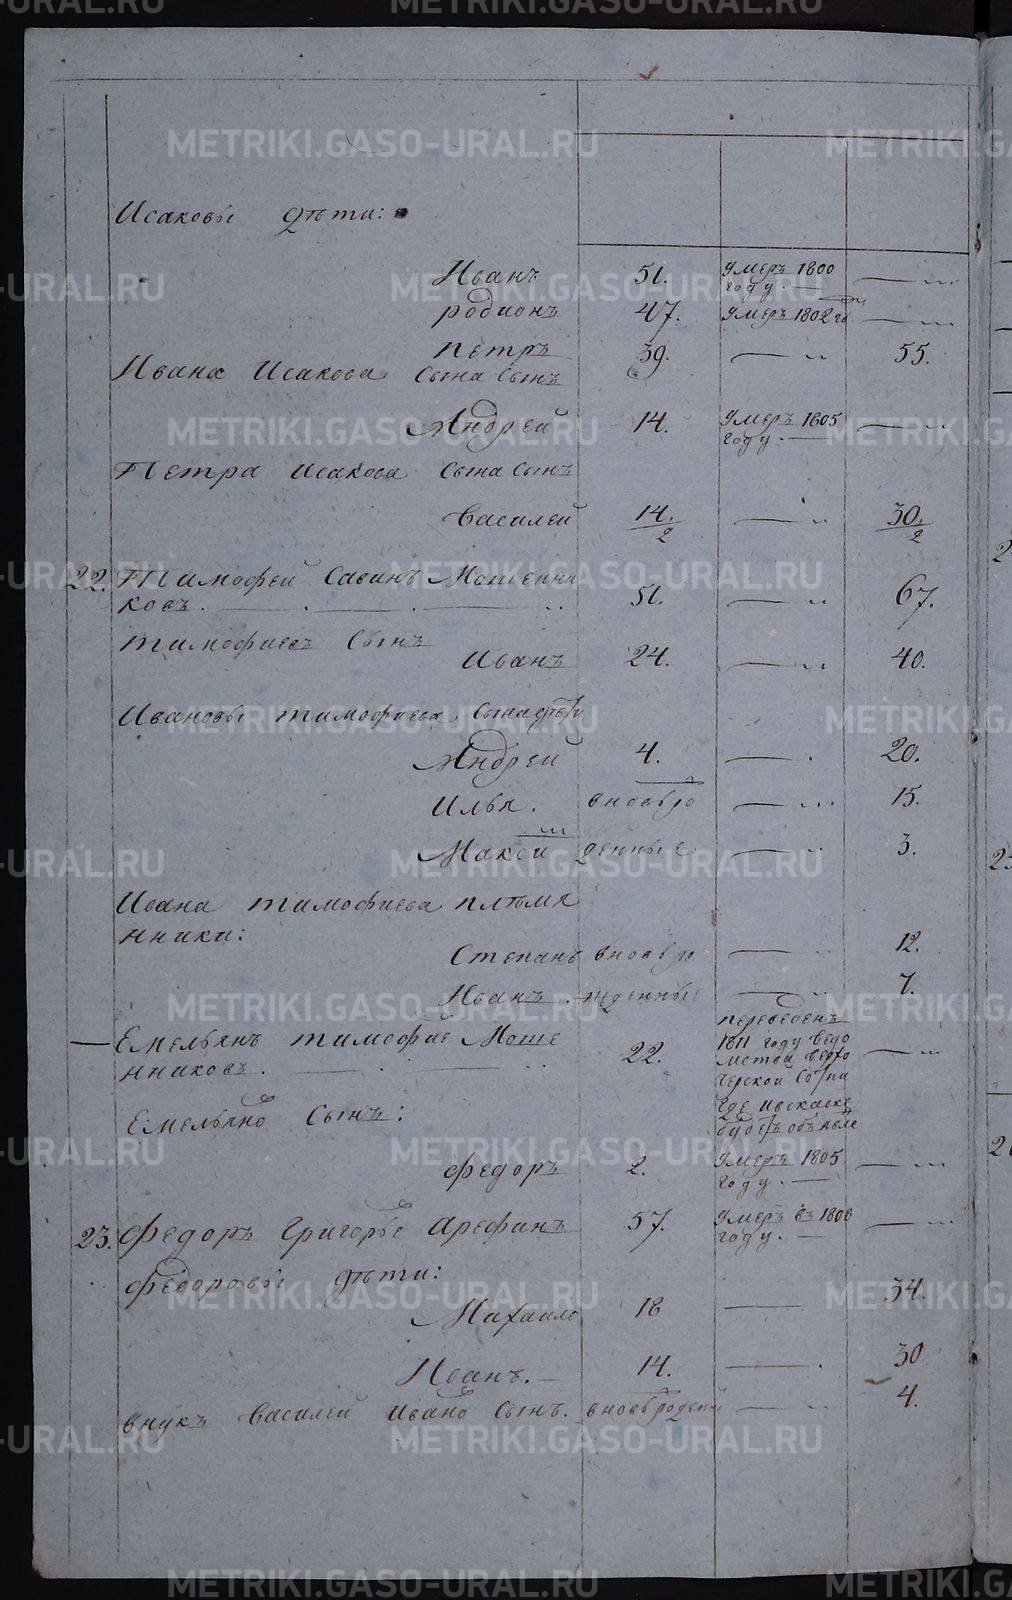 Исаковы дѣти:
Иванъ 51. умеръ 1800 году.
родионъ 47. умеръ 1802 году
Петръ 39. 55.
Ивана Исакова сына сынъ
Андрей 14. умеръ 1805 году.
Петра Исакова сына сынъ
Василей 14./2 30./2
22. Тимофей Савинъ Мошенни
ковъ. 51. 67.
тимофиевъ сынъ
Иванъ 24. 40.
Ивановы тимофиева сына дѣти
Андрей 4. 20.
Илья. вновь ро 15.
Максим жденные 3.
Ивана тимофиева племя
нники:
Степанъ вновь ро 12.
Иванъ. жденные 7.
Емельянъ тимофиев Моше
нниковъ. 22. переведенъ
1811 году ведо
мства
где
Емельянов сынъ:
федоръ 2. умеръ 1805 году.
23. Федоръ Григорьев Арефинъ 57. умеръ въ 1806 году.
федоровы дѣти:
Михаило 18 34.
Иванъ. 14. 30
внукъ Василей Иванов сынъ. вновь рожден 4.
METRIKI.GASO-URAL.RU